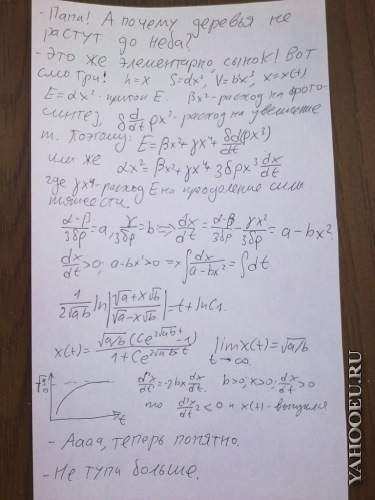 - Папа! А почему деревья не
растут до неба?
- Это же элементарно сынок! Вот
смотри! h=x S=αx², V=bx³, x=x(t)
E=αx² - приток E. βx² - расход на фото-
синтез, δ d/dt ρx³ - расход на увеличение
m. Поэтому: E=βx²+γx⁴+ δd/dt (ρx³)
или же αx²=βx²+γx⁴+3δρx² dx/dt
где γx⁴-расход E на преодоление силы
тяжести.
(α-β)/3δρ=a, γ/3δρ=b => dx/dt = (α-β)/3δρ - γx²/3δρ = a-bx².
dx/dt>0; a-bx²>0 => ∫dx/(a-bx²) = ∫dt
1/(2√ab) ln|(√a+x√b)/(√a-x√b)| = t+lnC₁.
x(t) = √a/b (Ce^(2√ab t) -1)/(1+Ce^(2√ab t)) lim x(t)=√a/b t→∞.
√a/b t d²x/dt²=-2bx dx/dt. b>0; x>0; dx/dt>0
то d²x/dt²<0 и x(t)-выпуклая
- Аааа, теперь понятно.
- Не тупи больше.
YAHOOEU.RU